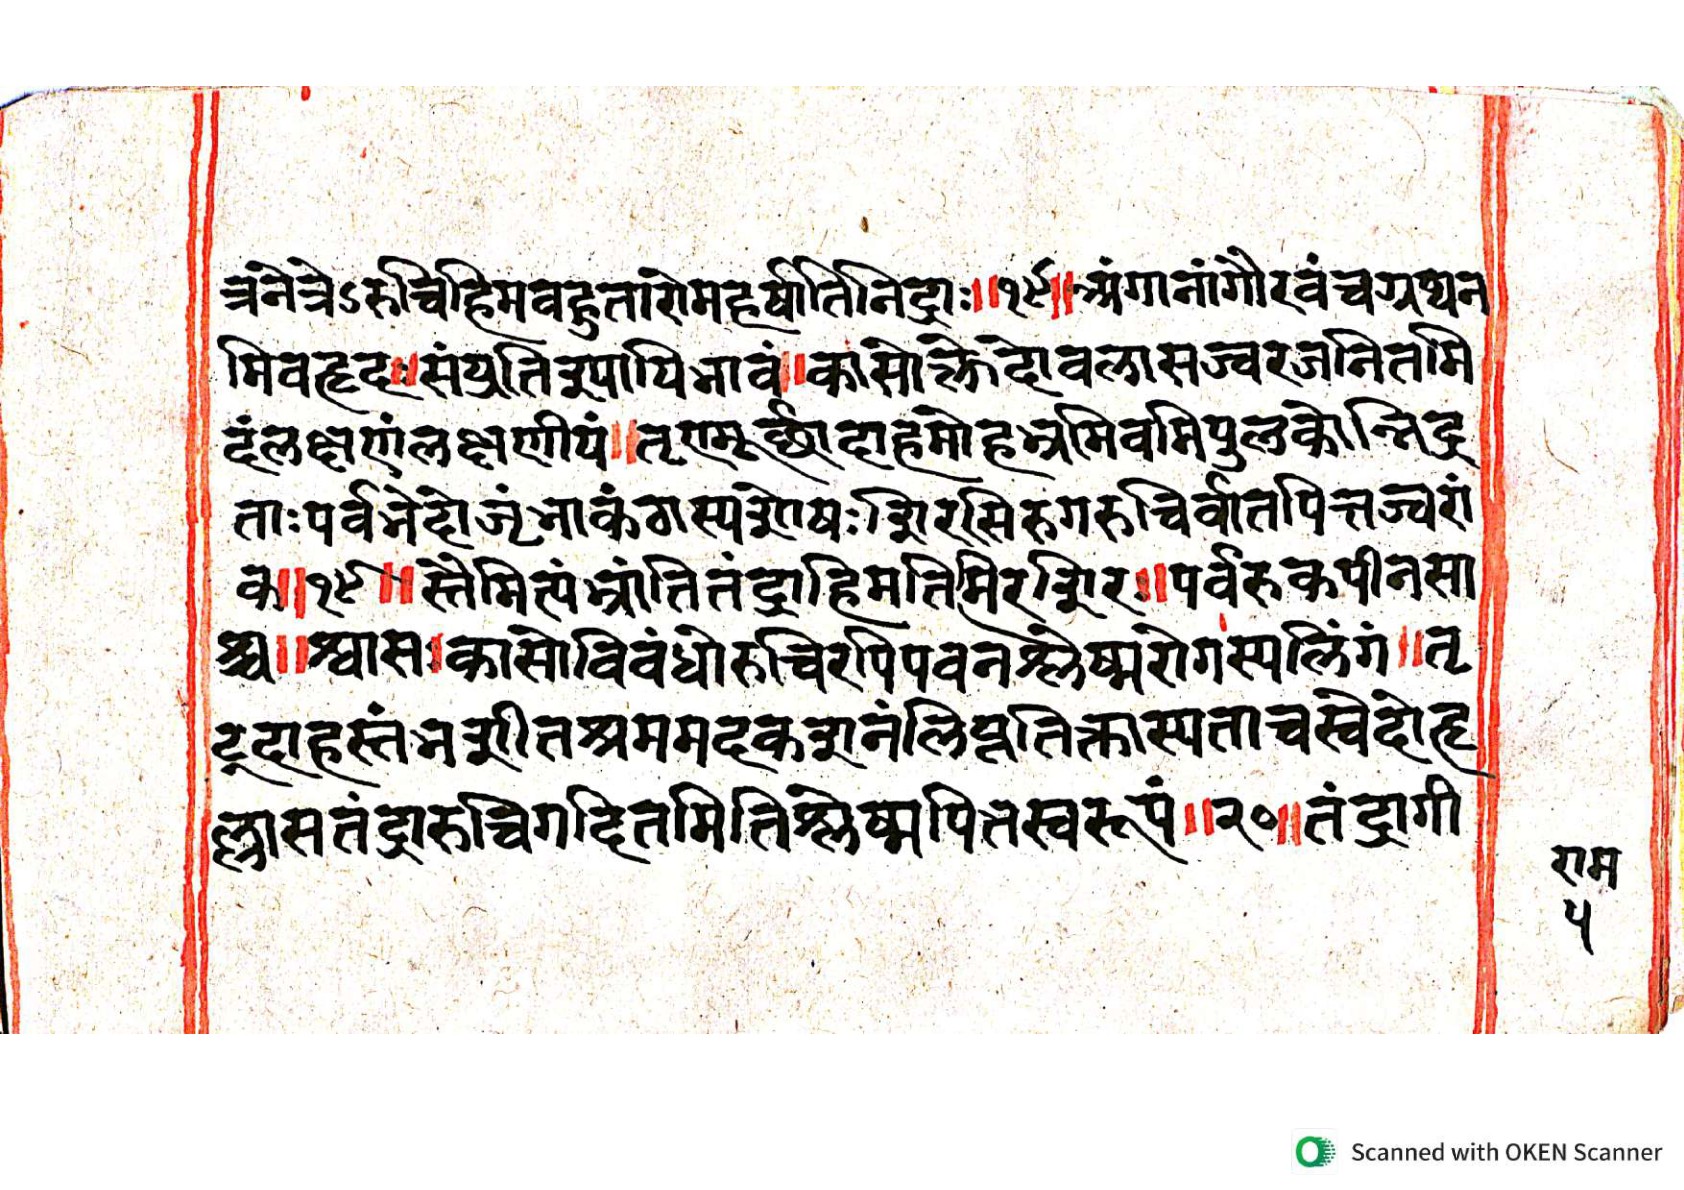 त्रंनेत्रेऽरुचिहिमवहुतारोमहर्षातिनिद्राः॥१८॥अंगानांगौरवंचग्रथन
मिवहृदः॥संयुतिश्रुपायिभावं॥कासोत्क्लेदोवलासज्वरजनितमि
दंलक्षणंलक्षणीयं॥तृणमूर्छादाहमोहभ्रमिवमिपुलकोन्निद्र
ताःपर्वभेदोजृंभाकंठास्यशोषःशिरसिरुगरुचिर्वातपित्तज्वरां
क॥१९॥स्तैमित्यंभ्रांतितंद्राहिमतिमिरशिरः॥पर्वरुकपीनसा
श्च॥श्वासःकासोविवंधोरुचिरपिपवनश्लेष्मरोगस्यलिंगं॥तृ
ट्दाहस्तंभशीतश्रममदकशनंलिप्ततिक्तास्यताचस्वेदोहृ
ल्लासतंद्रारुचिगदितमितिश्लेष्मपितस्वरूपं॥२०॥तंद्रागी
राम
५
Scanned with OKEN Scanner